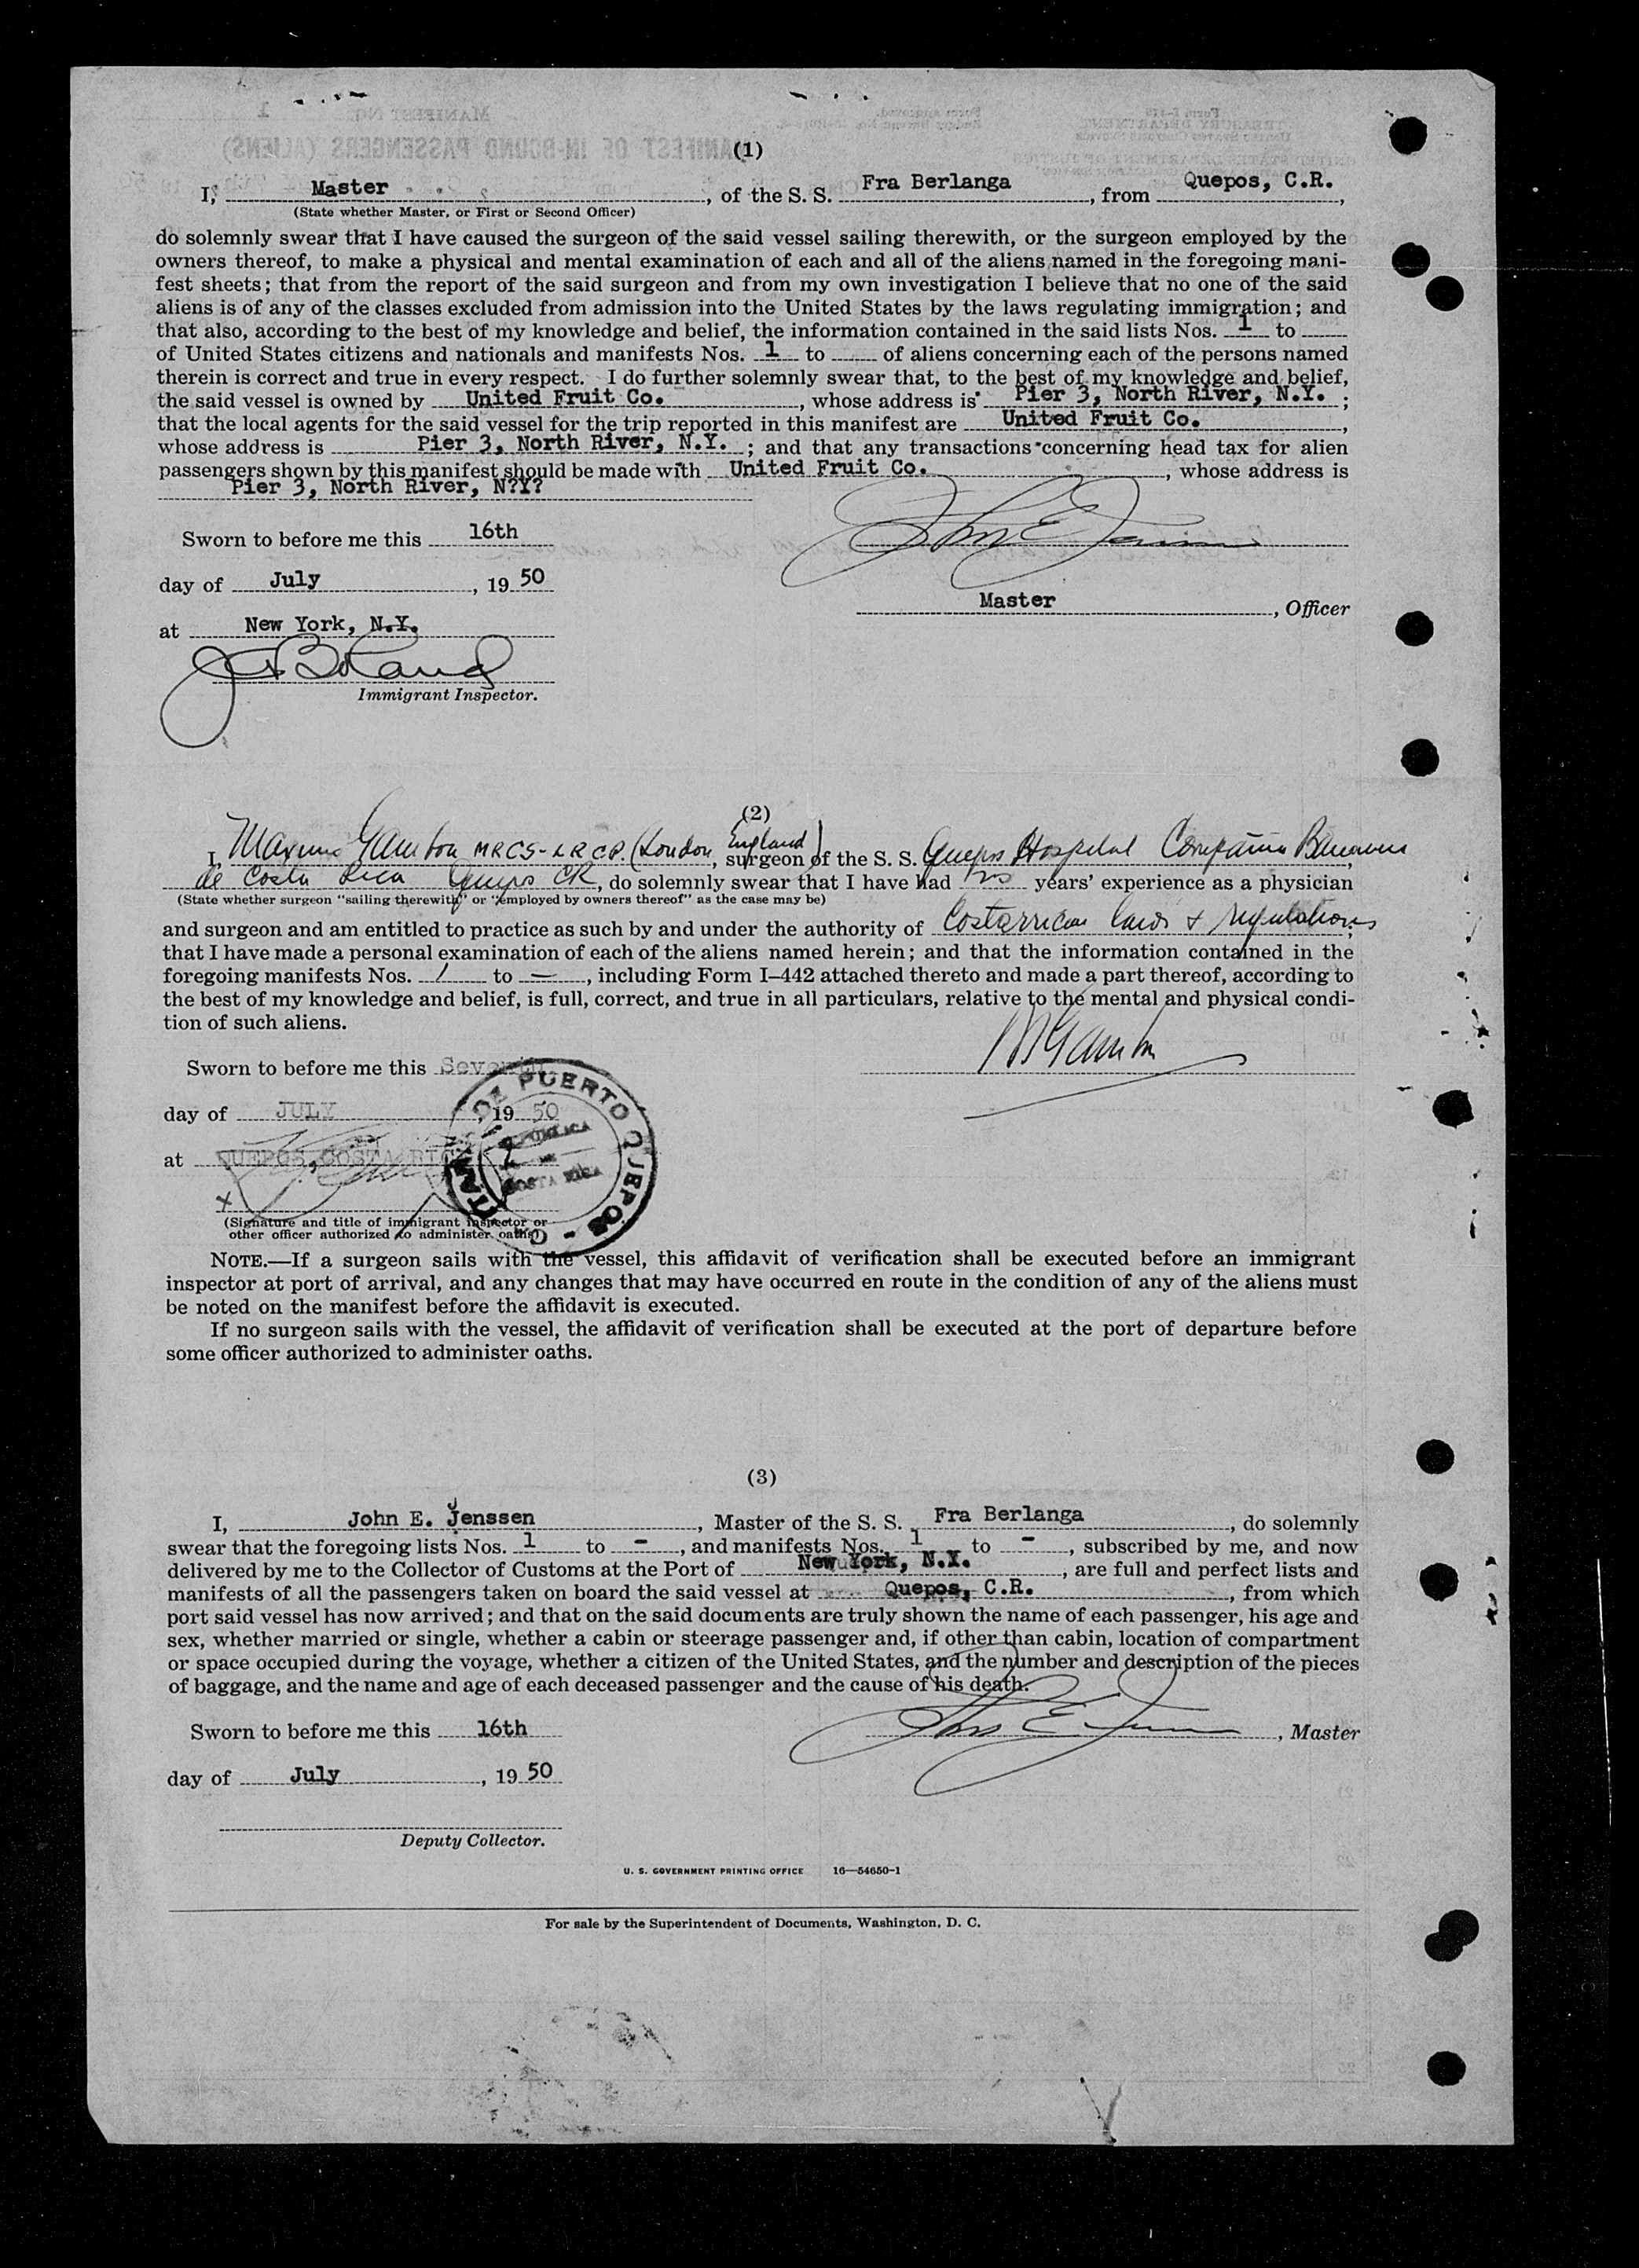 (1)
I, Master, of the S. S. Fra Berlanga, from Quepos, C.R.,
(State whether Master, or First or Second Officer)
do solemnly swear that I have caused the surgeon of the said vessel sailing therewith, or the surgeon employed by the
owners thereof, to make a physical and mental examination of each and all of the aliens named in the foregoing mani-
fest sheets; that from the report of the said surgeon and from my own investigation I believe that no one of the said
aliens is of any of the classes excluded from admission into the United States by the laws regulating immigration; and
that also, according to the best of my knowledge and belief, the information contained in the said lists Nos. 1 to
of United States citizens and nationals and manifests Nos. 1 to of aliens concerning each of the persons named
therein is correct and true in every respect. I do further solemnly swear that, to the best of my knowledge and belief,
the said vessel is owned by United Fruit Co., whose address is Pier 3, North River, N.Y.;
that the local agents for the said vessel for the trip reported in this manifest are United Fruit Co.,
whose address is Pier 3, North River, N.Y.; and that any transactions concerning head tax for alien
passengers shown by this manifest should be made with United Fruit Co., whose address is
Pier 3, North River, N?Y?
Sworn to before me this 16th
day of July, 19 50
Master, Officer
at New York, N.Y.
Immigrant Inspector.
(2)
I, MRCS-LRCP. (London, England) surgeon of the S. S. Quepos Hospital
de Costa Rica Quepos CR, do solemnly swear that I have had years' experience as a physician
(State whether surgeon "sailing therewith" or "employed by owners thereof" as the case may be)
and surgeon and am entitled to practice as such by and under the authority of Costarrican laws & regulations;
that I have made a personal examination of each of the aliens named herein; and that the information contained in the
foregoing manifests Nos. 1 to –, including Form I–442 attached thereto and made a part thereof, according to
the best of my knowledge and belief, is full, correct, and true in all particulars, relative to the mental and physical condi-
tion of such aliens.
Sworn to before me this Seventh
day of JULY, 19 50
at QUEPOS, COSTA RICA
DE PUERTO QUEPOS
REPUBLICA
DE
COSTA RICA
X
(Signature and title of immigrant inspector or
other officer authorized to administer oaths)
NOTE.—If a surgeon sails with the vessel, this affidavit of verification shall be executed before an immigrant
inspector at port of arrival, and any changes that may have occurred en route in the condition of any of the aliens must
be noted on the manifest before the affidavit is executed.
If no surgeon sails with the vessel, the affidavit of verification shall be executed at the port of departure before
some officer authorized to administer oaths.
(3)
I, John E. Jenssen, Master of the S. S. Fra Berlanga, do solemnly
swear that the foregoing lists Nos. 1 to -, and manifests Nos. 1 to -, subscribed by me, and now
delivered by me to the Collector of Customs at the Port of New York, N.Y., are full and perfect lists and
manifests of all the passengers taken on board the said vessel at Quepos, C.R., from which
port said vessel has now arrived; and that on the said documents are truly shown the name of each passenger, his age and
sex, whether married or single, whether a cabin or steerage passenger and, if other than cabin, location of compartment
or space occupied during the voyage, whether a citizen of the United States, and the number and description of the pieces
of baggage, and the name and age of each deceased passenger and the cause of his death.
Sworn to before me this 16th
, Master
day of July, 19 50
Deputy Collector.
U. S. GOVERNMENT PRINTING OFFICE 16—54650-1
For sale by the Superintendent of Documents, Washington, D. C.